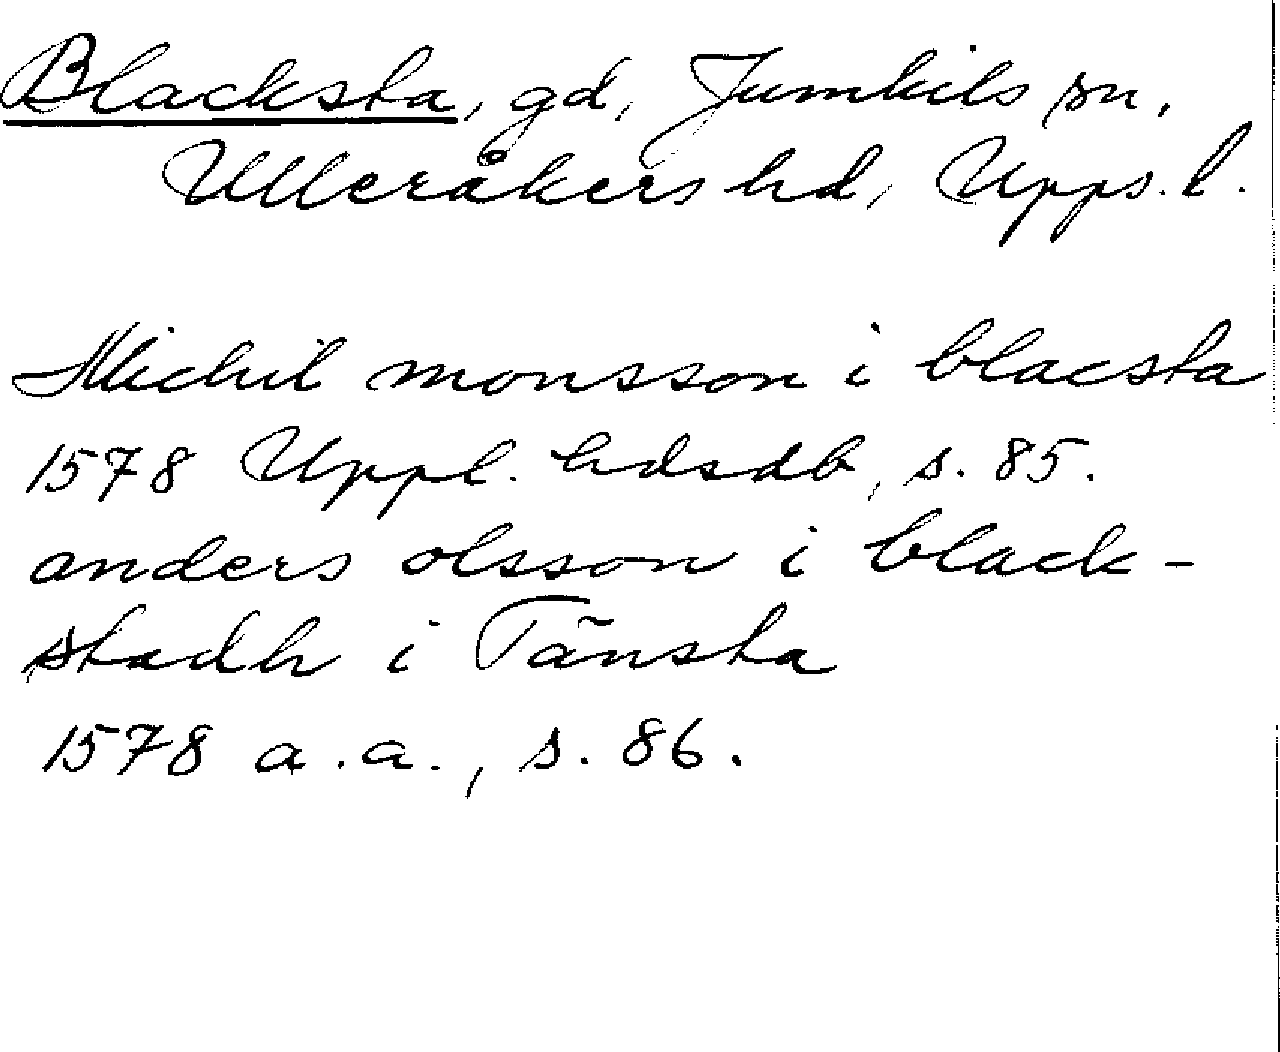 Blacksta, gd, Jumkils sn,
Ulleråkers hd, Upps. l.
Michil monsson i blacsta
1578 Uppl. hdsdb, s. 85.
anders olsson i black-
stadh i Tänsta
1578 a.a., s. 86.